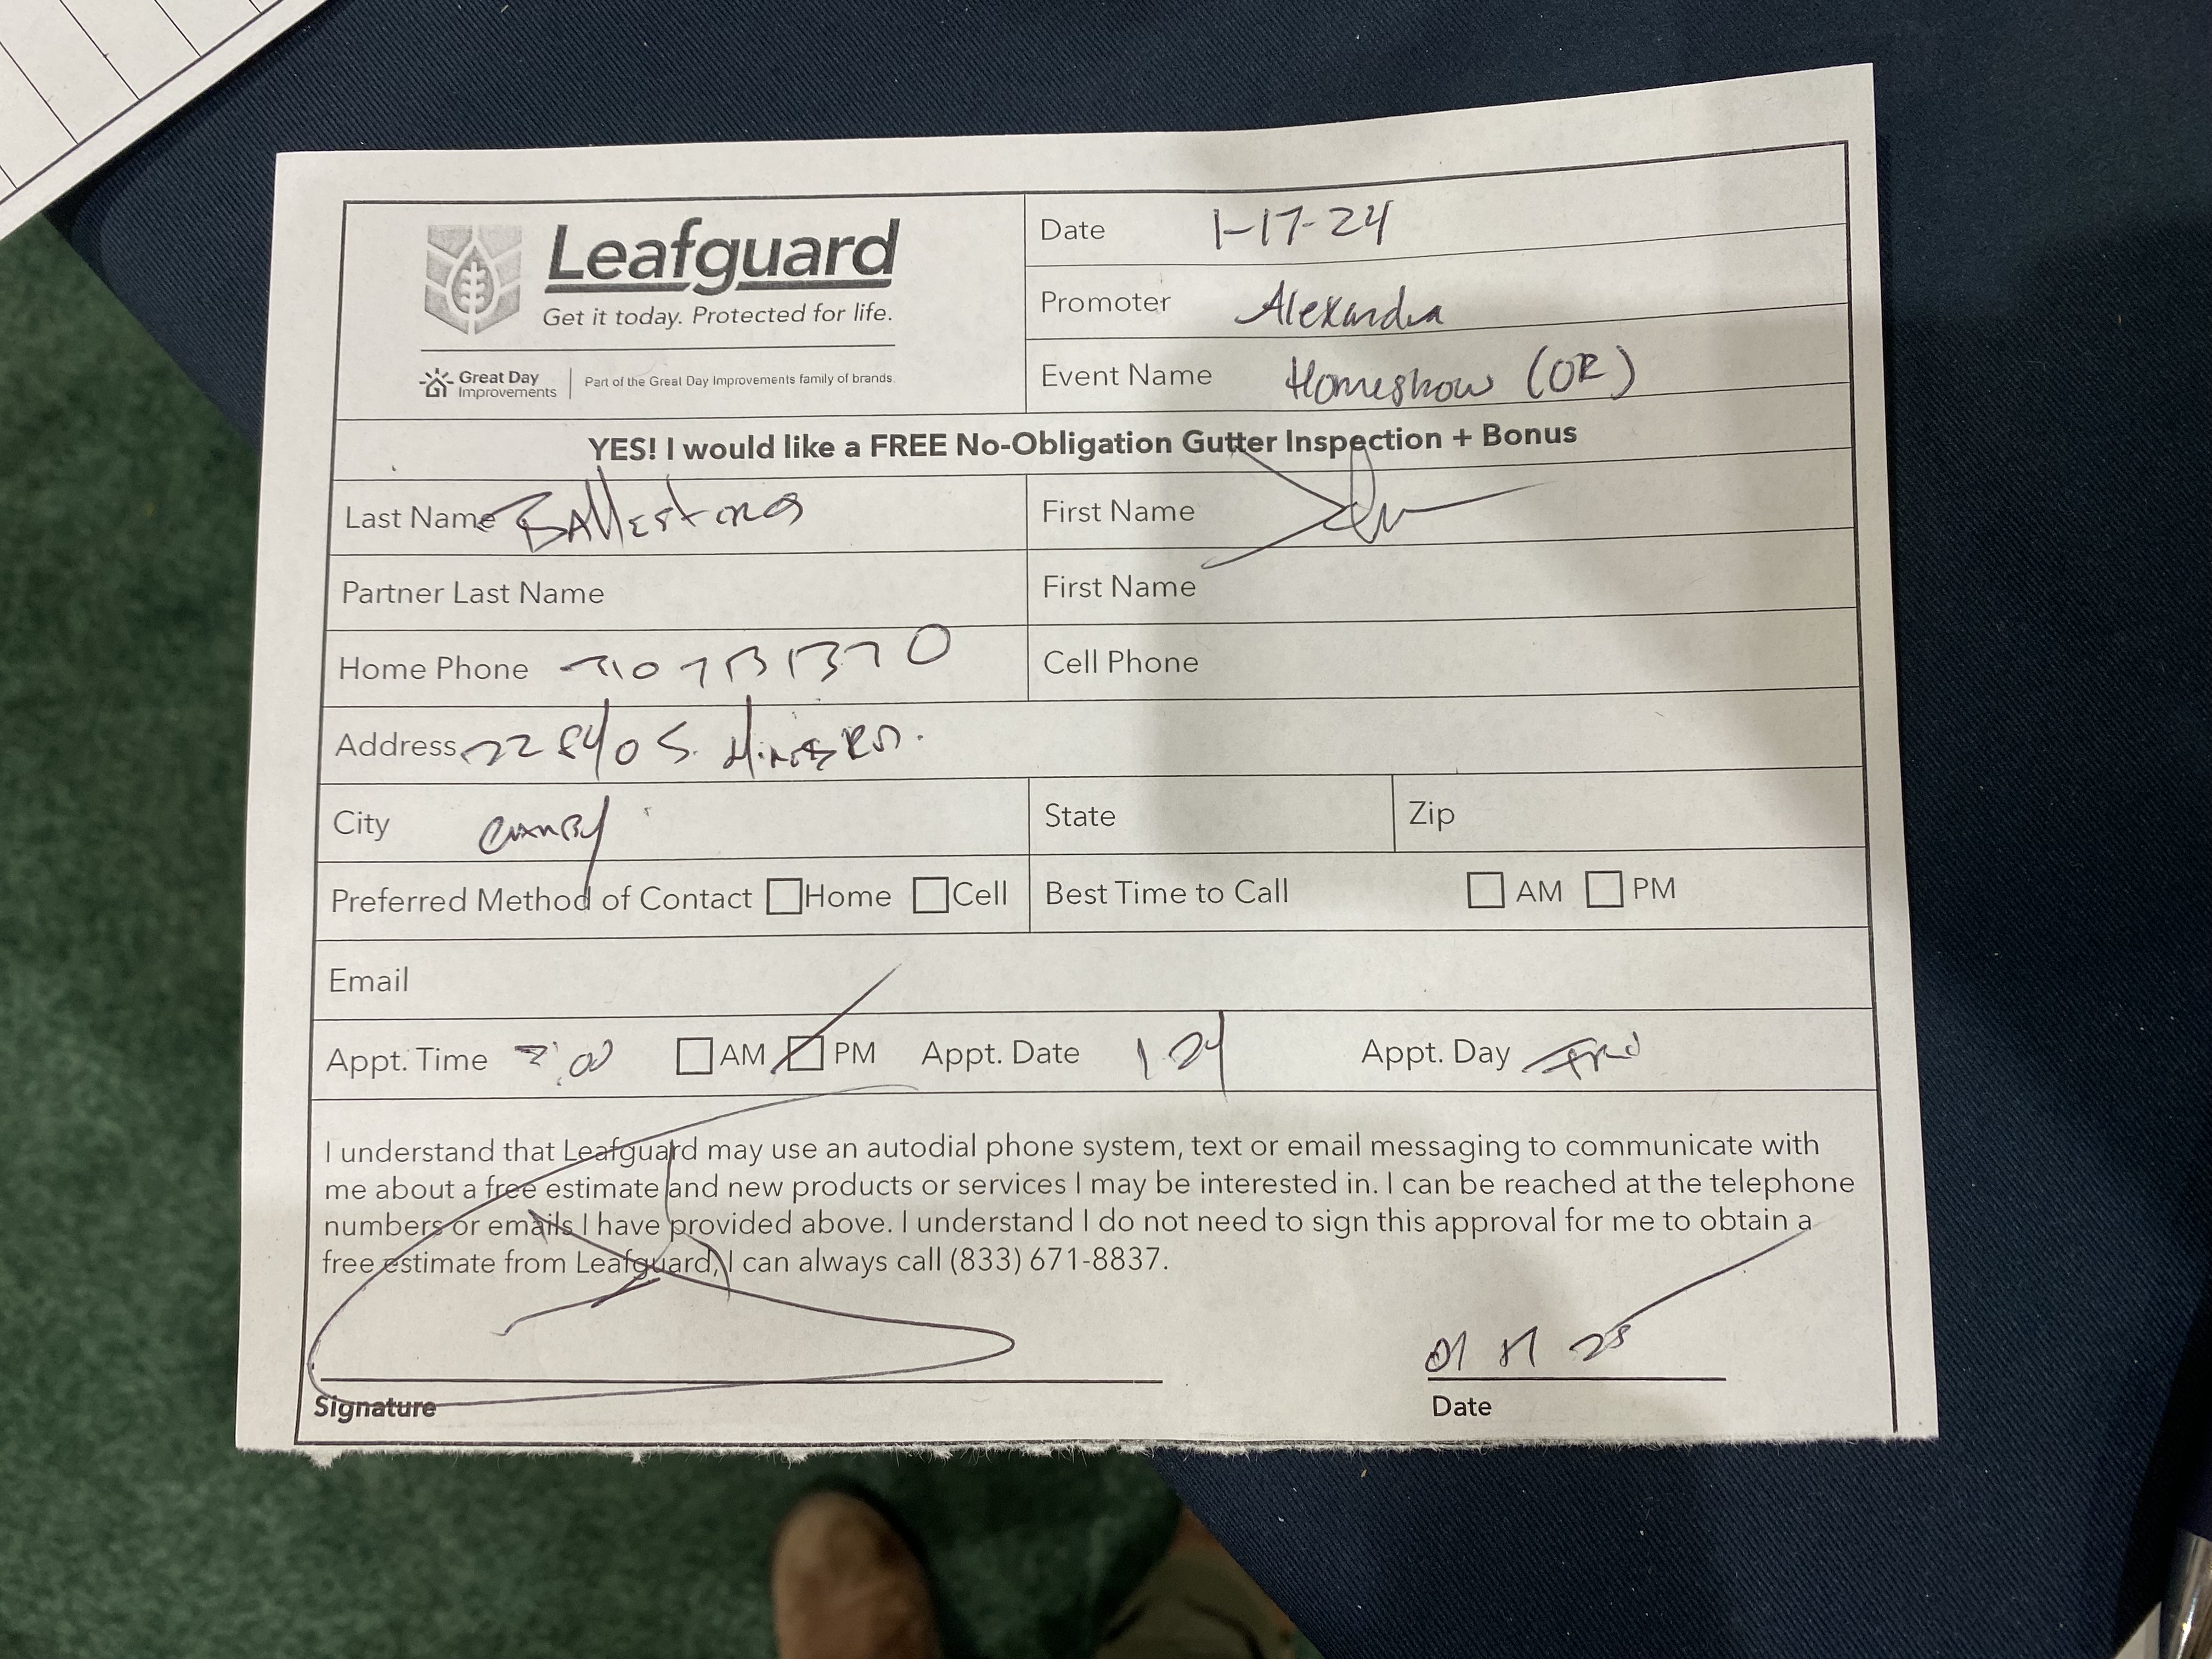 Leafguard
Get it today. Protected for life.
Great Day Improvements | Part of the Great Day Improvements family of brands
Date 1-17-24
Promoter Alexandra
Event Name Homeshow (OR)
YES! I would like a FREE No-Obligation Gutter Inspection + Bonus
Last Name First Name
Partner Last Name First Name
Home Phone Cell Phone
Address 22840 S.
City State Zip
Preferred Method of Contact Home Cell Best Time to Call AM PM
Email
Appt. Time AM PM Appt. Date Appt. Day
I understand that Leafguard may use an autodial phone system, text or email messaging to communicate with
me about a free estimate and new products or services I may be interested in. I can be reached at the telephone
numbers or emails I have provided above. I understand I do not need to sign this approval for me to obtain a
free estimate from Leafguard, I can always call (833) 671-8837.
Signature Date